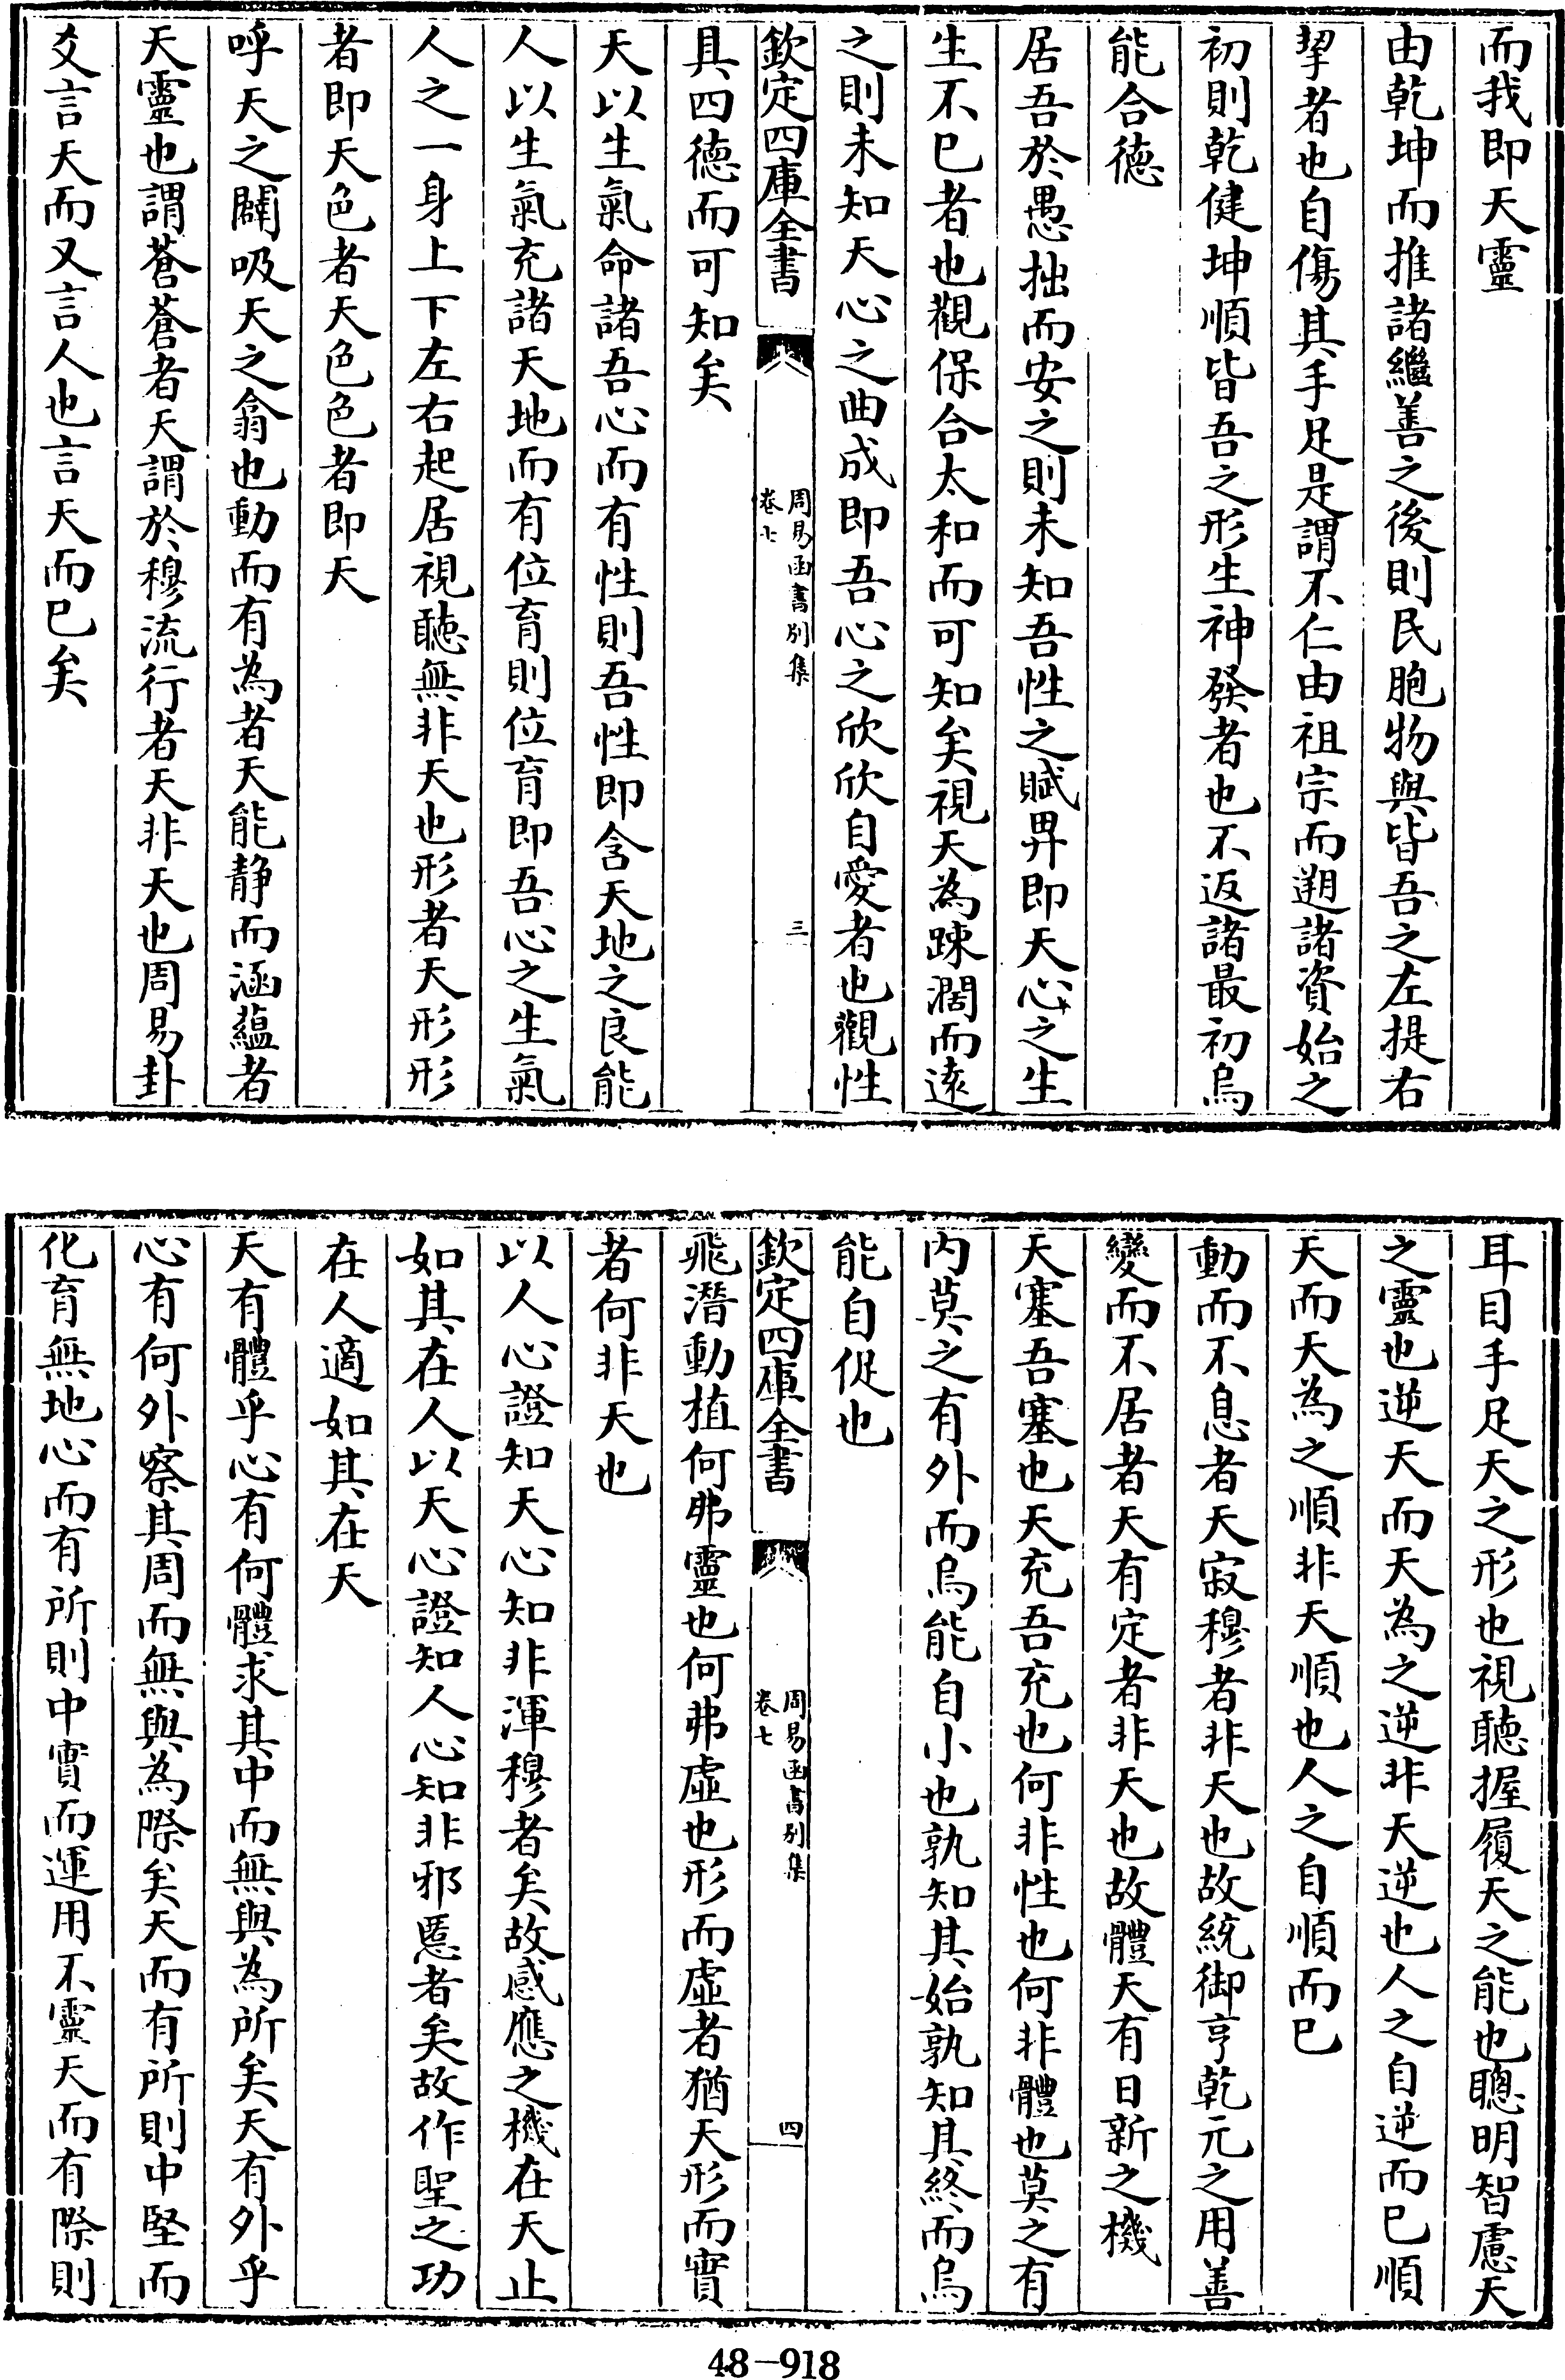 而我即天靈
由乾坤而推諸繼善之後則民胞物與皆吾之左提右
挈者也自傷其手足是謂不仁由祖宗而遡諸資始之
初則乾健坤順皆吾之形生神發者也不返諸最初烏
能合德
居吾於愚拙而安之則未知吾性之賦畀即天心之生
生不已者也觀保合太和而可知矣視天為踈濶而遠
之則未知天心之曲成即吾心之欣欣自愛者也觀性
欽定四庫全書
周易函書別集
卷七
三
具四德而可知矣
天以生氣命諸吾心而有性則吾性即含天地之良能
人以生氣充諸天地而有位育則位育即吾心之生氣
人之一身上下左右起居視聽無非天也形者天形形
者即天色者天色色者即天
呼天之闢吸天之翕也動而有為者天能靜而涵蘊者
天靈也謂蒼蒼者天謂於穆流行者天非天也周易卦
爻言天而又言人也言天而已矣
耳目手足天之形也視聽握履天之能也聰明智慮天
之靈也逆天而天為之逆非天逆也人之自逆而已順
天而天為之順非天順也人之自順而已
動而不息者天寂穆者非天也故統御亨乾元之用善
變而不居者天有定者非天也故體天有日新之機
天塞吾塞也天充吾充也何非性也何非體也莫之有
內莫之有外而烏能自小也孰知其始孰知其終而烏
能自促也
欽定四庫全書
周易函書別集
卷七
四
飛潛動植何弗靈也何弗虛也形而虛者猶天形而實
者何非天也
以人心證知天心知非渾穆者矣故感應之機在天止
如其在人以天心證知人心知非邪慝者矣故作聖之功
在人適如其在天
天有體乎心有何體求其中而無與為所矣天有外乎
心有何外察其周而無與為際矣天而有所則中堅而
化育無地心而有所則中實而運用不靈天而有際則
48-918